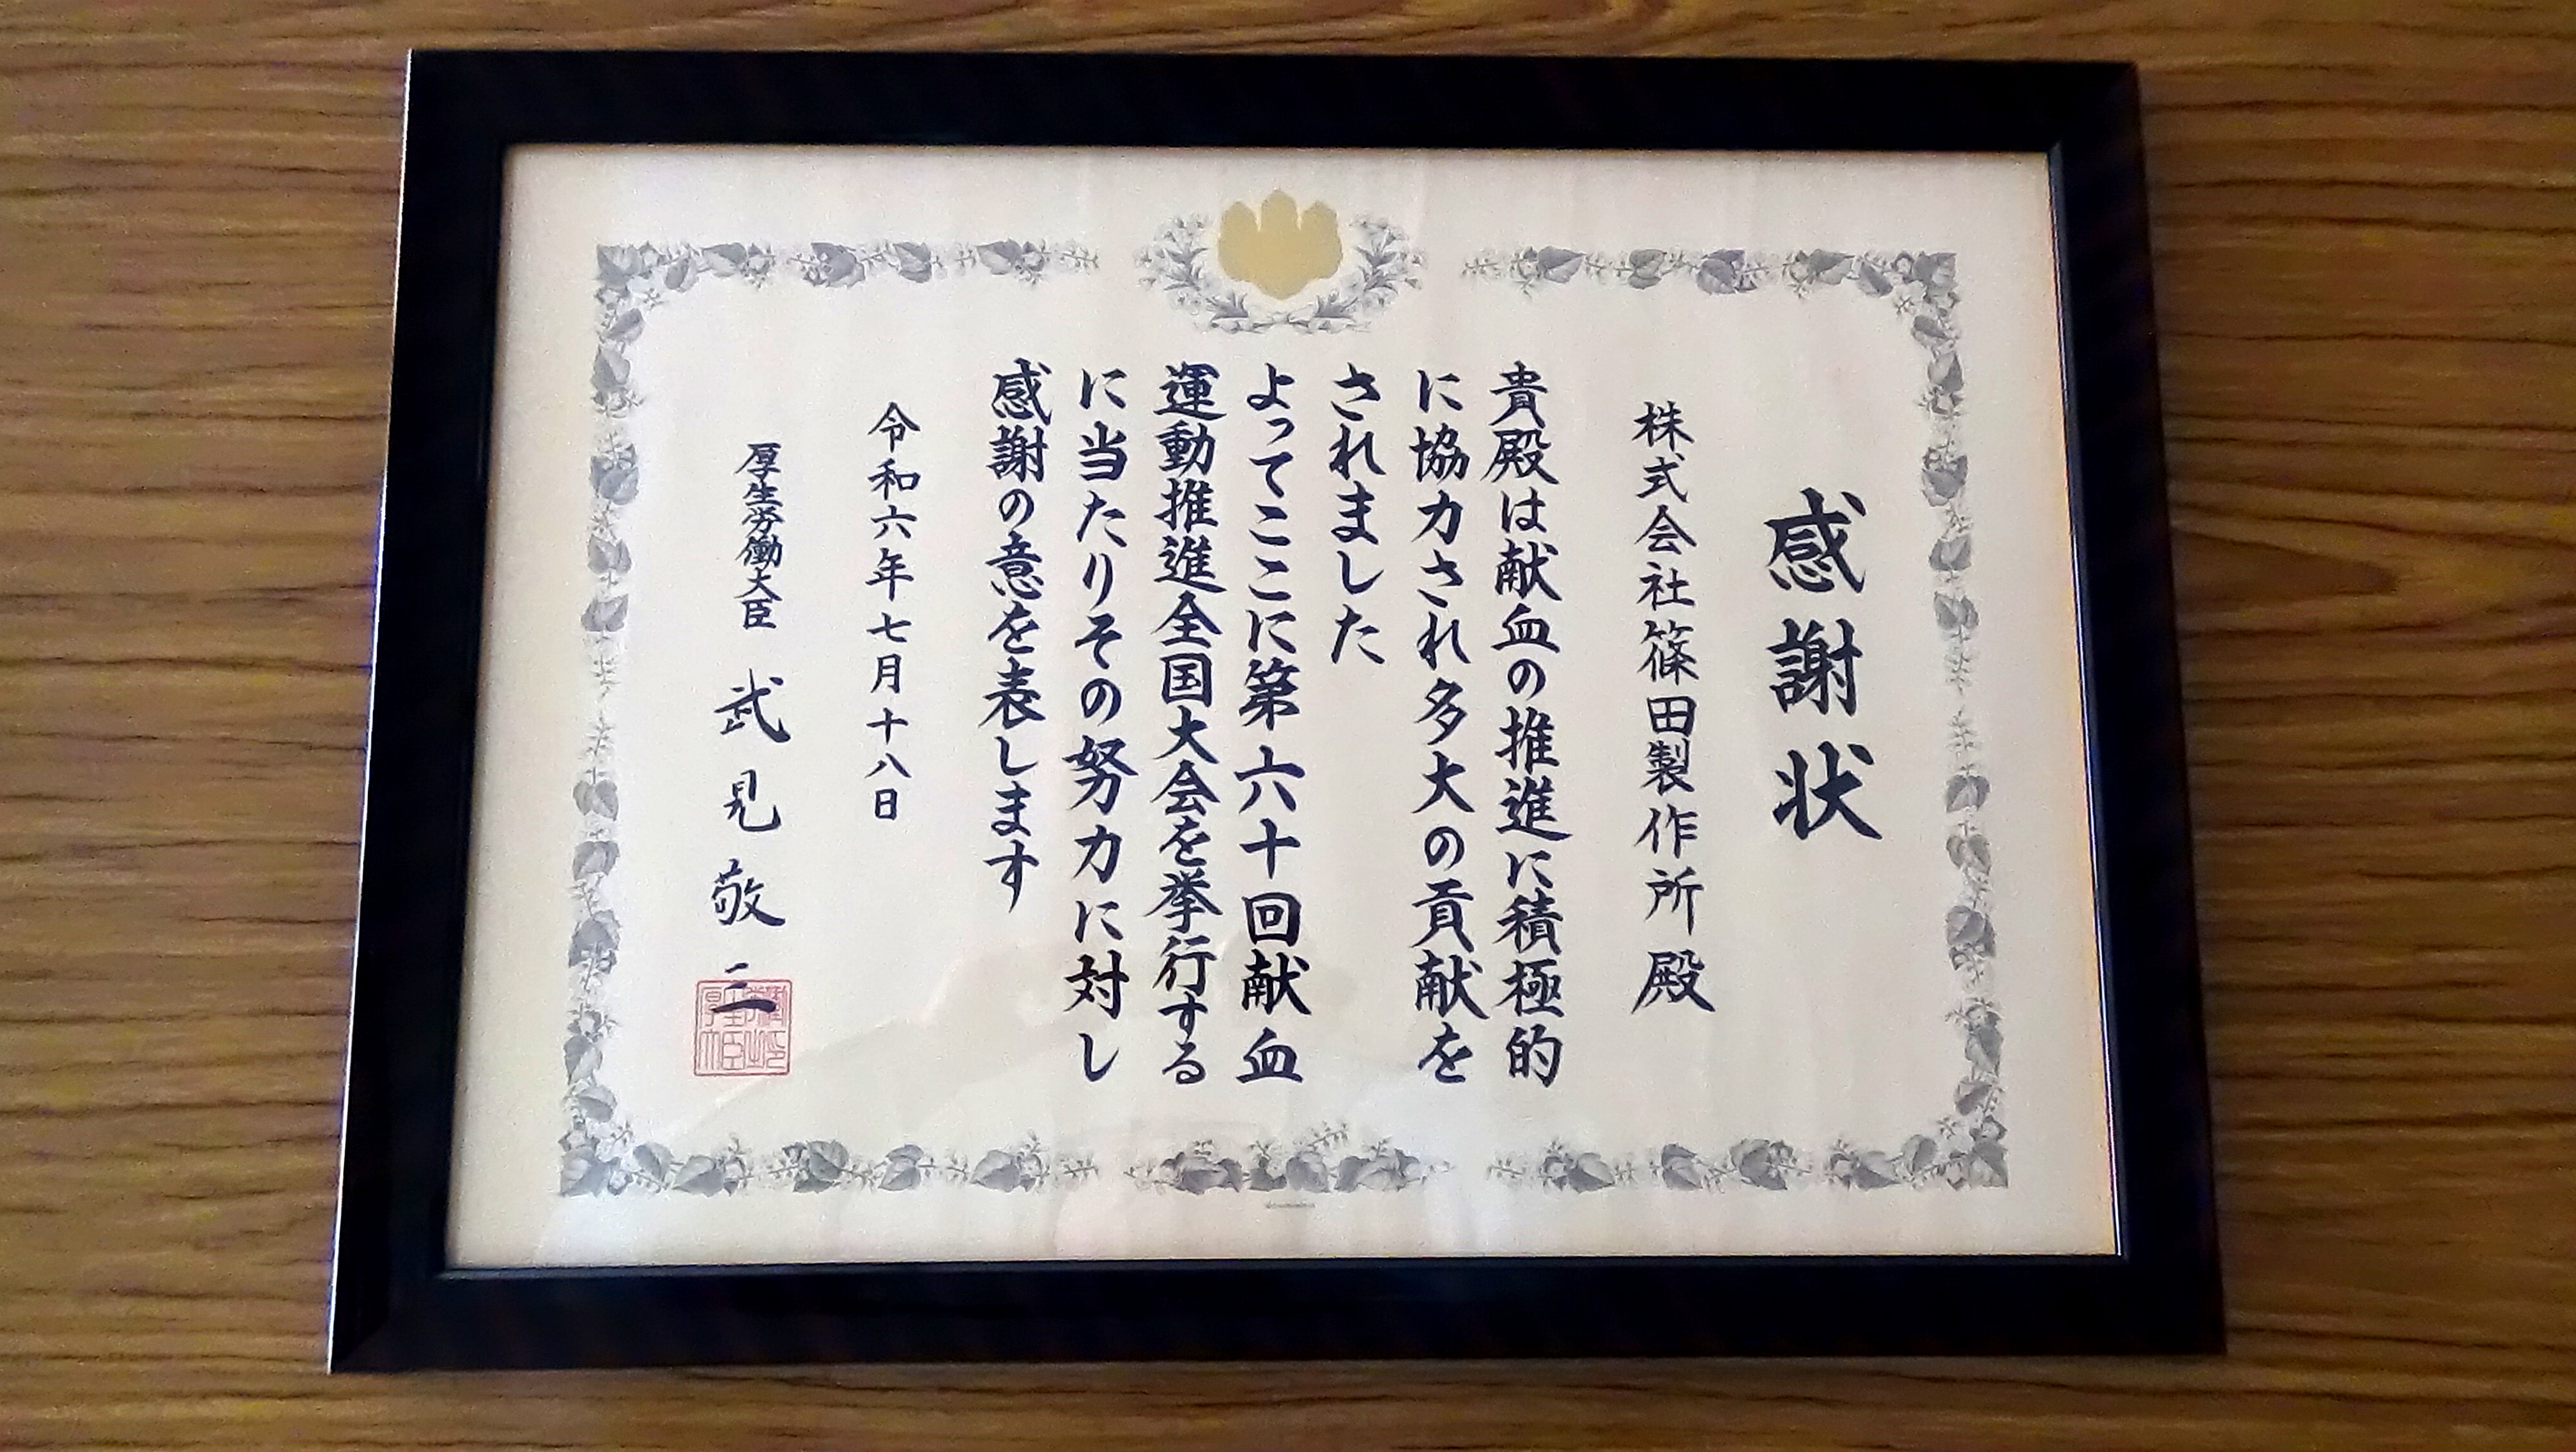 感謝状
株式会社篠田製作所殿
貴殿は献血の推進に積極的
に協力され多大の貢献を
されました
よってここに第六十回献血
運動推進全国大会を挙行する
に当たりその努力に対し
感謝の意を表します
令和六年七月十八日
厚生労働大臣 武見敬三